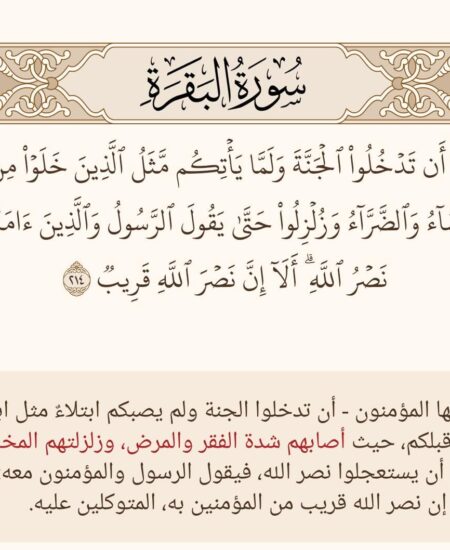 سُورَةُ البَقَرَةِ
أَن تَدۡخُلُواْ ٱلۡجَنَّةَ وَلَمَّا يَأۡتِكُم مَّثَلُ ٱلَّذِينَ خَلَوۡاْ مِن
وَٱلضَّرَّآءُ وَزُلۡزِلُواْ حَتَّىٰ يَقُولَ ٱلرَّسُولُ وَٱلَّذِينَ ءَامَ
نَصۡرُ ٱللَّهِۗ أَلَآ إِنَّ نَصۡرَ ٱللَّهِ قَرِيبٞ ٢١٤
المؤمنون - أن تدخلوا الجنة ولم يصبكم ابتلاءٌ مثل
قبلكم، حيث أصابهم شدة الفقر والمرض، وزلزلتهم
أن يستعجلوا نصر الله، فيقول الرسول والمؤمنون معه
إن نصر الله قريب من المؤمنين به، المتوكلين عليه.